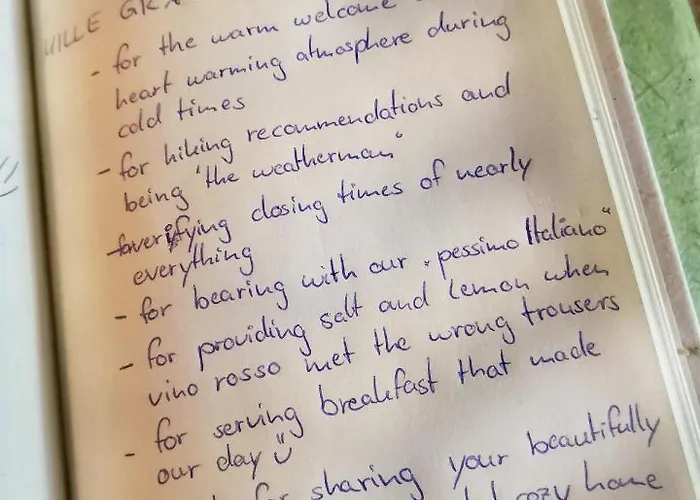 MILLE GRA
- for the warm welcome
heart warming atmosphere during
cold times
- for hiking recommendations and
being "the weatherman"
- averifying closing times of nearly
everything
- for bearing with our "pessimo Italiano"
- for providing salt and lemon when
vino rosso met the wrong trousers
- for serving breakfast that made
our day Ü
for sharing your beautifully
cozy home